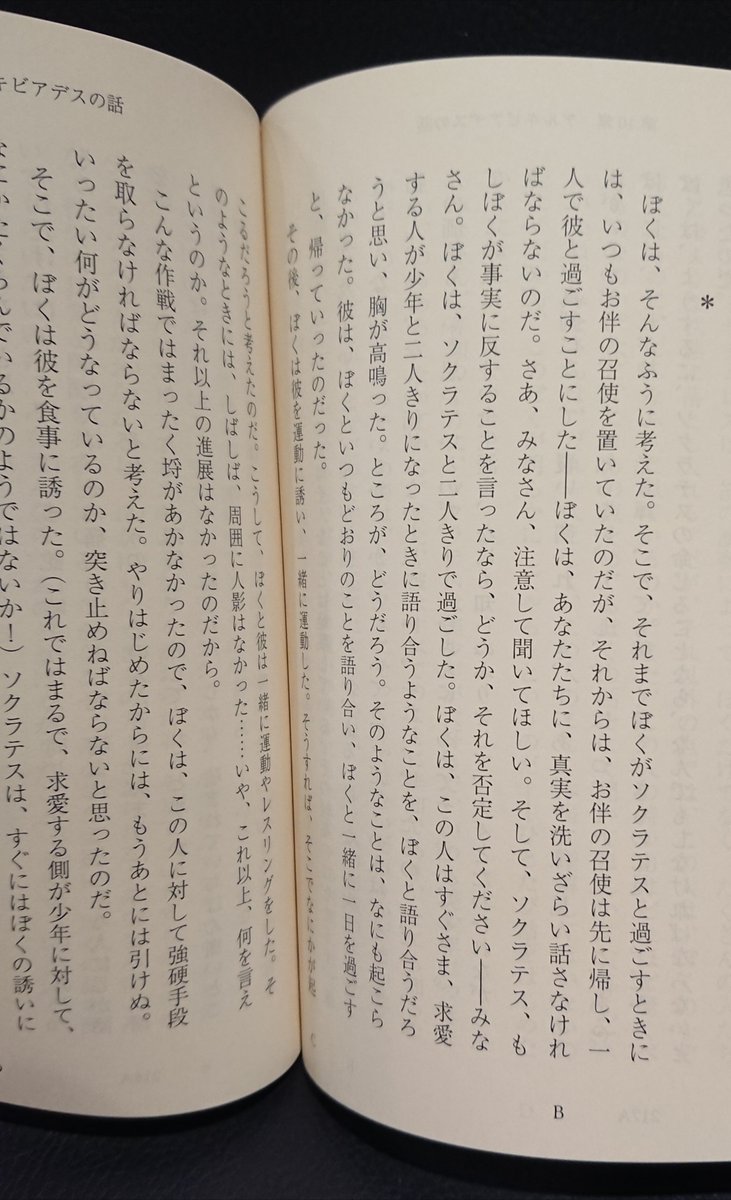 *
ぼくは、そんなふうに考えた。そこで、それまでぼくがソクラテスと過ごすときに
は、いつもお伴の召使を置いていたのだが、それからは、お伴の召使は先に帰し、一
人で彼と過ごすことにした――ぼくは、あなたたちに、真実を洗いざらい話さなけれ
ばならないのだ。さあ、みなさん、注意して聞いてほしい。そして、ソクラテス、も
しぼくが事実に反することを言ったなら、どうか、それを否定してください――みな
さん。ぼくは、ソクラテスと二人きりで過ごした。ぼくは、この人はすぐさま、求愛
する人が少年と二人きりになったときに語り合うようなことを、ぼくと語り合うだろ
うと思い、胸が高鳴った。ところが、どうだろう。そのようなことは、なにも起こら
なかった。彼は、ぼくといつもどおりのことを語り合い、ぼくと一緒に一日を過ごす
と、帰っていったのだった。
その後、ぼくは彼を運動に誘い、一緒に運動した。そうすれば、そこでなにかが起
B
C
キビアデスの話
こるだろうと考えたのだ。こうして、ぼくと彼は一緒に運動やレスリングをした。そ
のようなときには、しばしば、周囲に人影はなかった……いや、これ以上、何を言え
というのか。それ以上の進展はなかったのだから。
こんな作戦ではまったく埒があかなかったので、ぼくは、この人に対して強硬手段
を取らなければならないと考えた。やりはじめたからには、もうあとには引けぬ。
いったい何がどうなっているのか、突き止めねばならないと思ったのだ。
そこで、ぼくは彼を食事に誘った。（これではまるで、求愛する側が少年に対して、
なにかたくらんでいるかのようではないか！）ソクラテスは、すぐにはぼくの誘いに